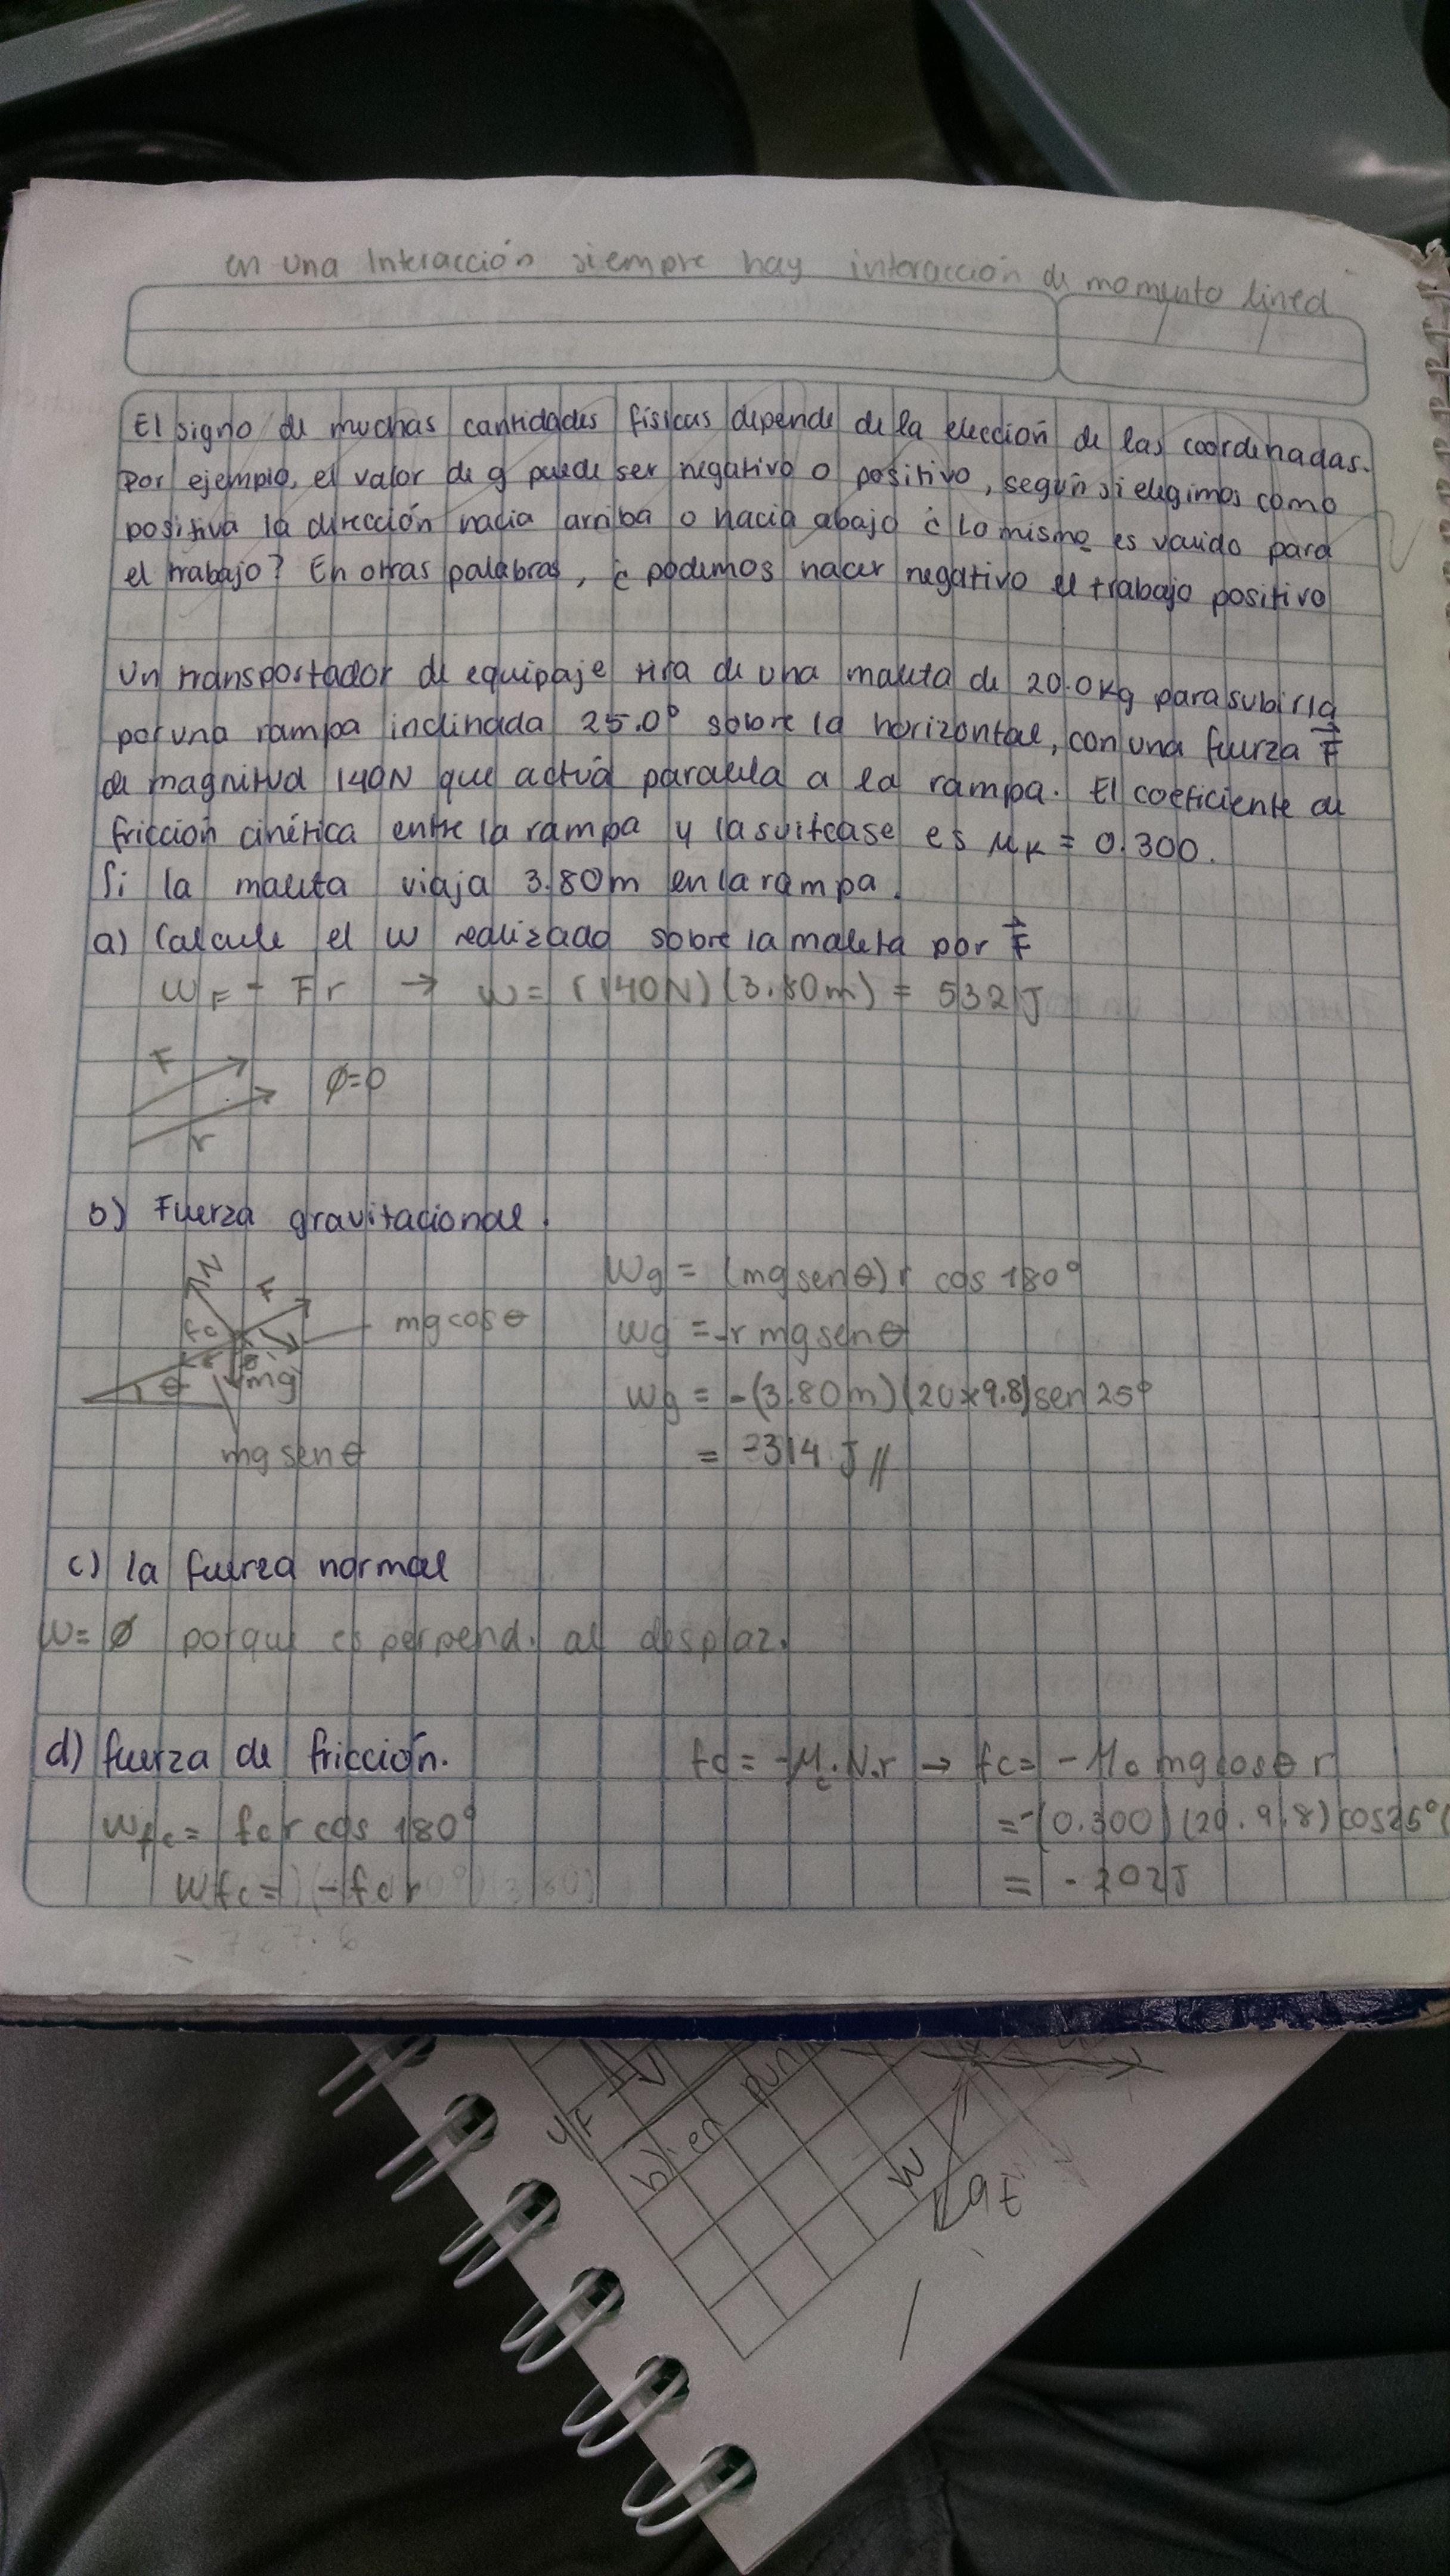 en una Interacción siempre hay interacción de momento lineal
El signo de muchas cantidades físicas depende de la elección de las coordenadas.
Por ejemplo, el valor de g puede ser negativo o positivo, según si elegimos como
positiva la dirección hacia arriba o hacia abajo ¿Lo mismo es valido para
el trabajo? En otras palabras, ¿ podemos hacer negativo el trabajo positivo
Un transportador de equipaje tira de una maleta de 20.0kg para subirla
por una rampa inclinada 25.0° sobre la horizontal, con una fuerza F⃗
de magnitud 140N que actúa paralela a la rampa. El coeficiente de
fricción cinética entre la rampa y la suitcase es μK = 0.300.
Si la maleta viaja 3.80m en la rampa.
a) Calcule el W realizado sobre la maleta por F⃗
WF = Fr → W = (140N)(3.80m) = 532 J
F
r
φ=0
b) Fuerza gravitacional.
N
F
fc
mg cos θ
θ
θ
mg
mg sen θ
Wg = (mg sen θ) r cos 180°
Wg = -r mg sen θ
Wg = -(3.80m)(20x9.8)sen 25°
= -314 J //
c) la fuerza normal
W= ∅ porque es perpend. al desplaz.
d) fuerza de fricción.
Wfc = fcr cos 180°
Wfc = -fc r
fc = -μc.N.r → fc = -μc mg cos θ r
= -(0.300)(20.9.8) cos25°(
= -202J
b) en
W